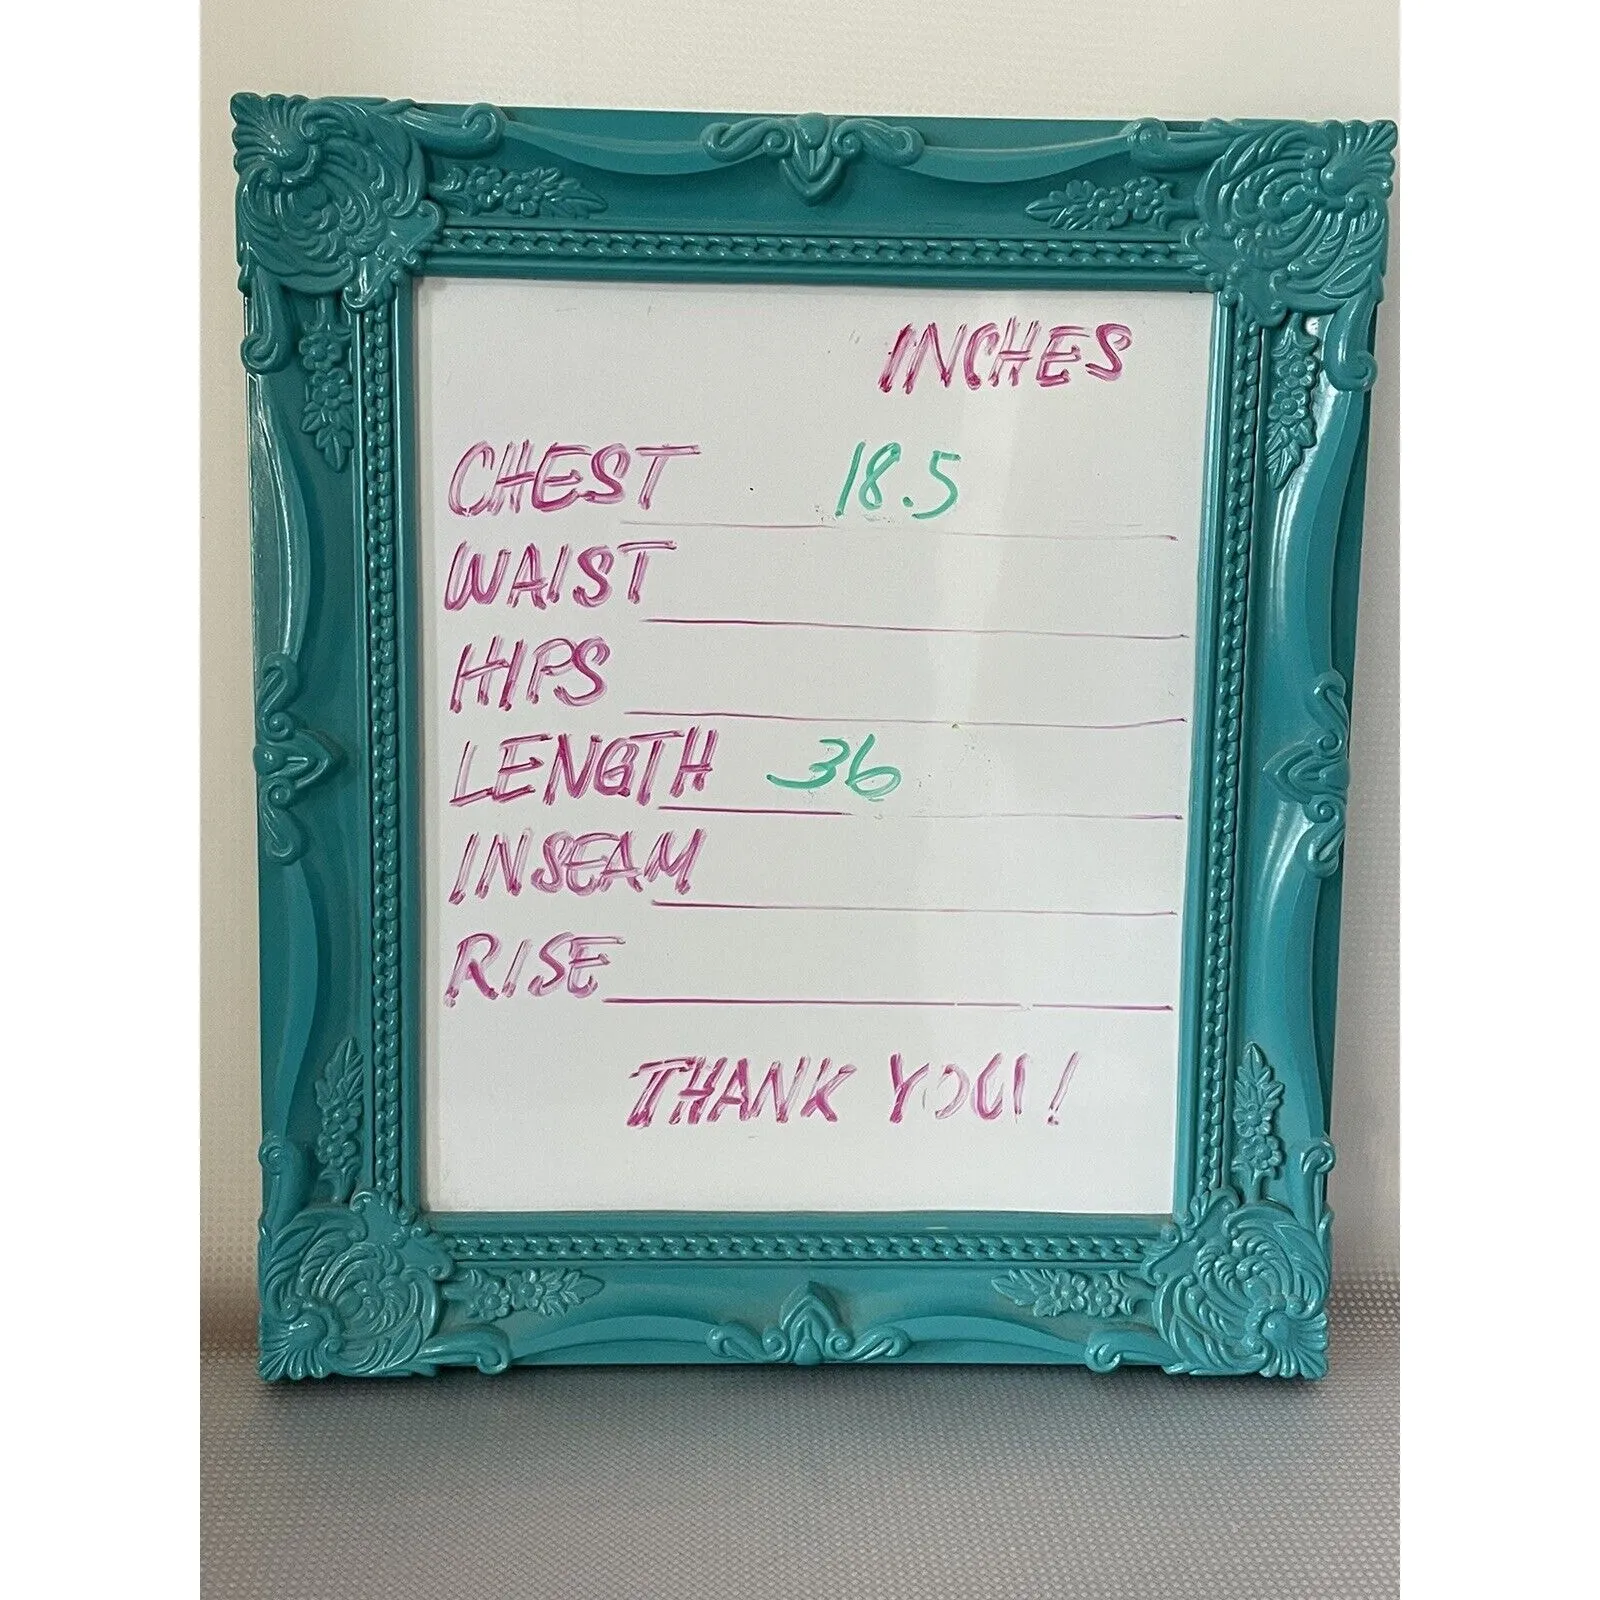 INCHES
CHEST 18.5
WAIST
HIPS
LENGTH 36
INSEAM
RISE
THANK YOU!